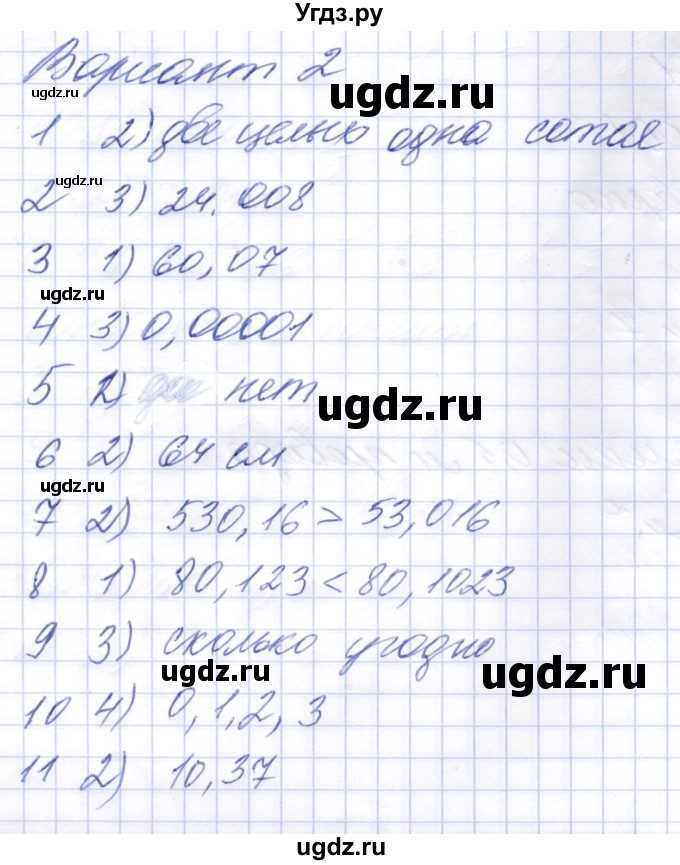 Угдз.ру
Вариант 2
ugdz.ru
ugdz.ru
1 2) две целых одна сотая
ugdz.ru
2 3) 24.008
3 1) 60,07
ugdz.ru
4 3) 0,00001
5 2) нет
ugdz.ru
6 2) 64 см
ugdz.ru
7 2) 530,16 > 53,016
8 1) 80,123 < 80,1023
9 3) сколько угодно
ugdz.ru
ugdz.ru
10 4) 0, 1, 2, 3
11 2) 10,37
ugdz.ru